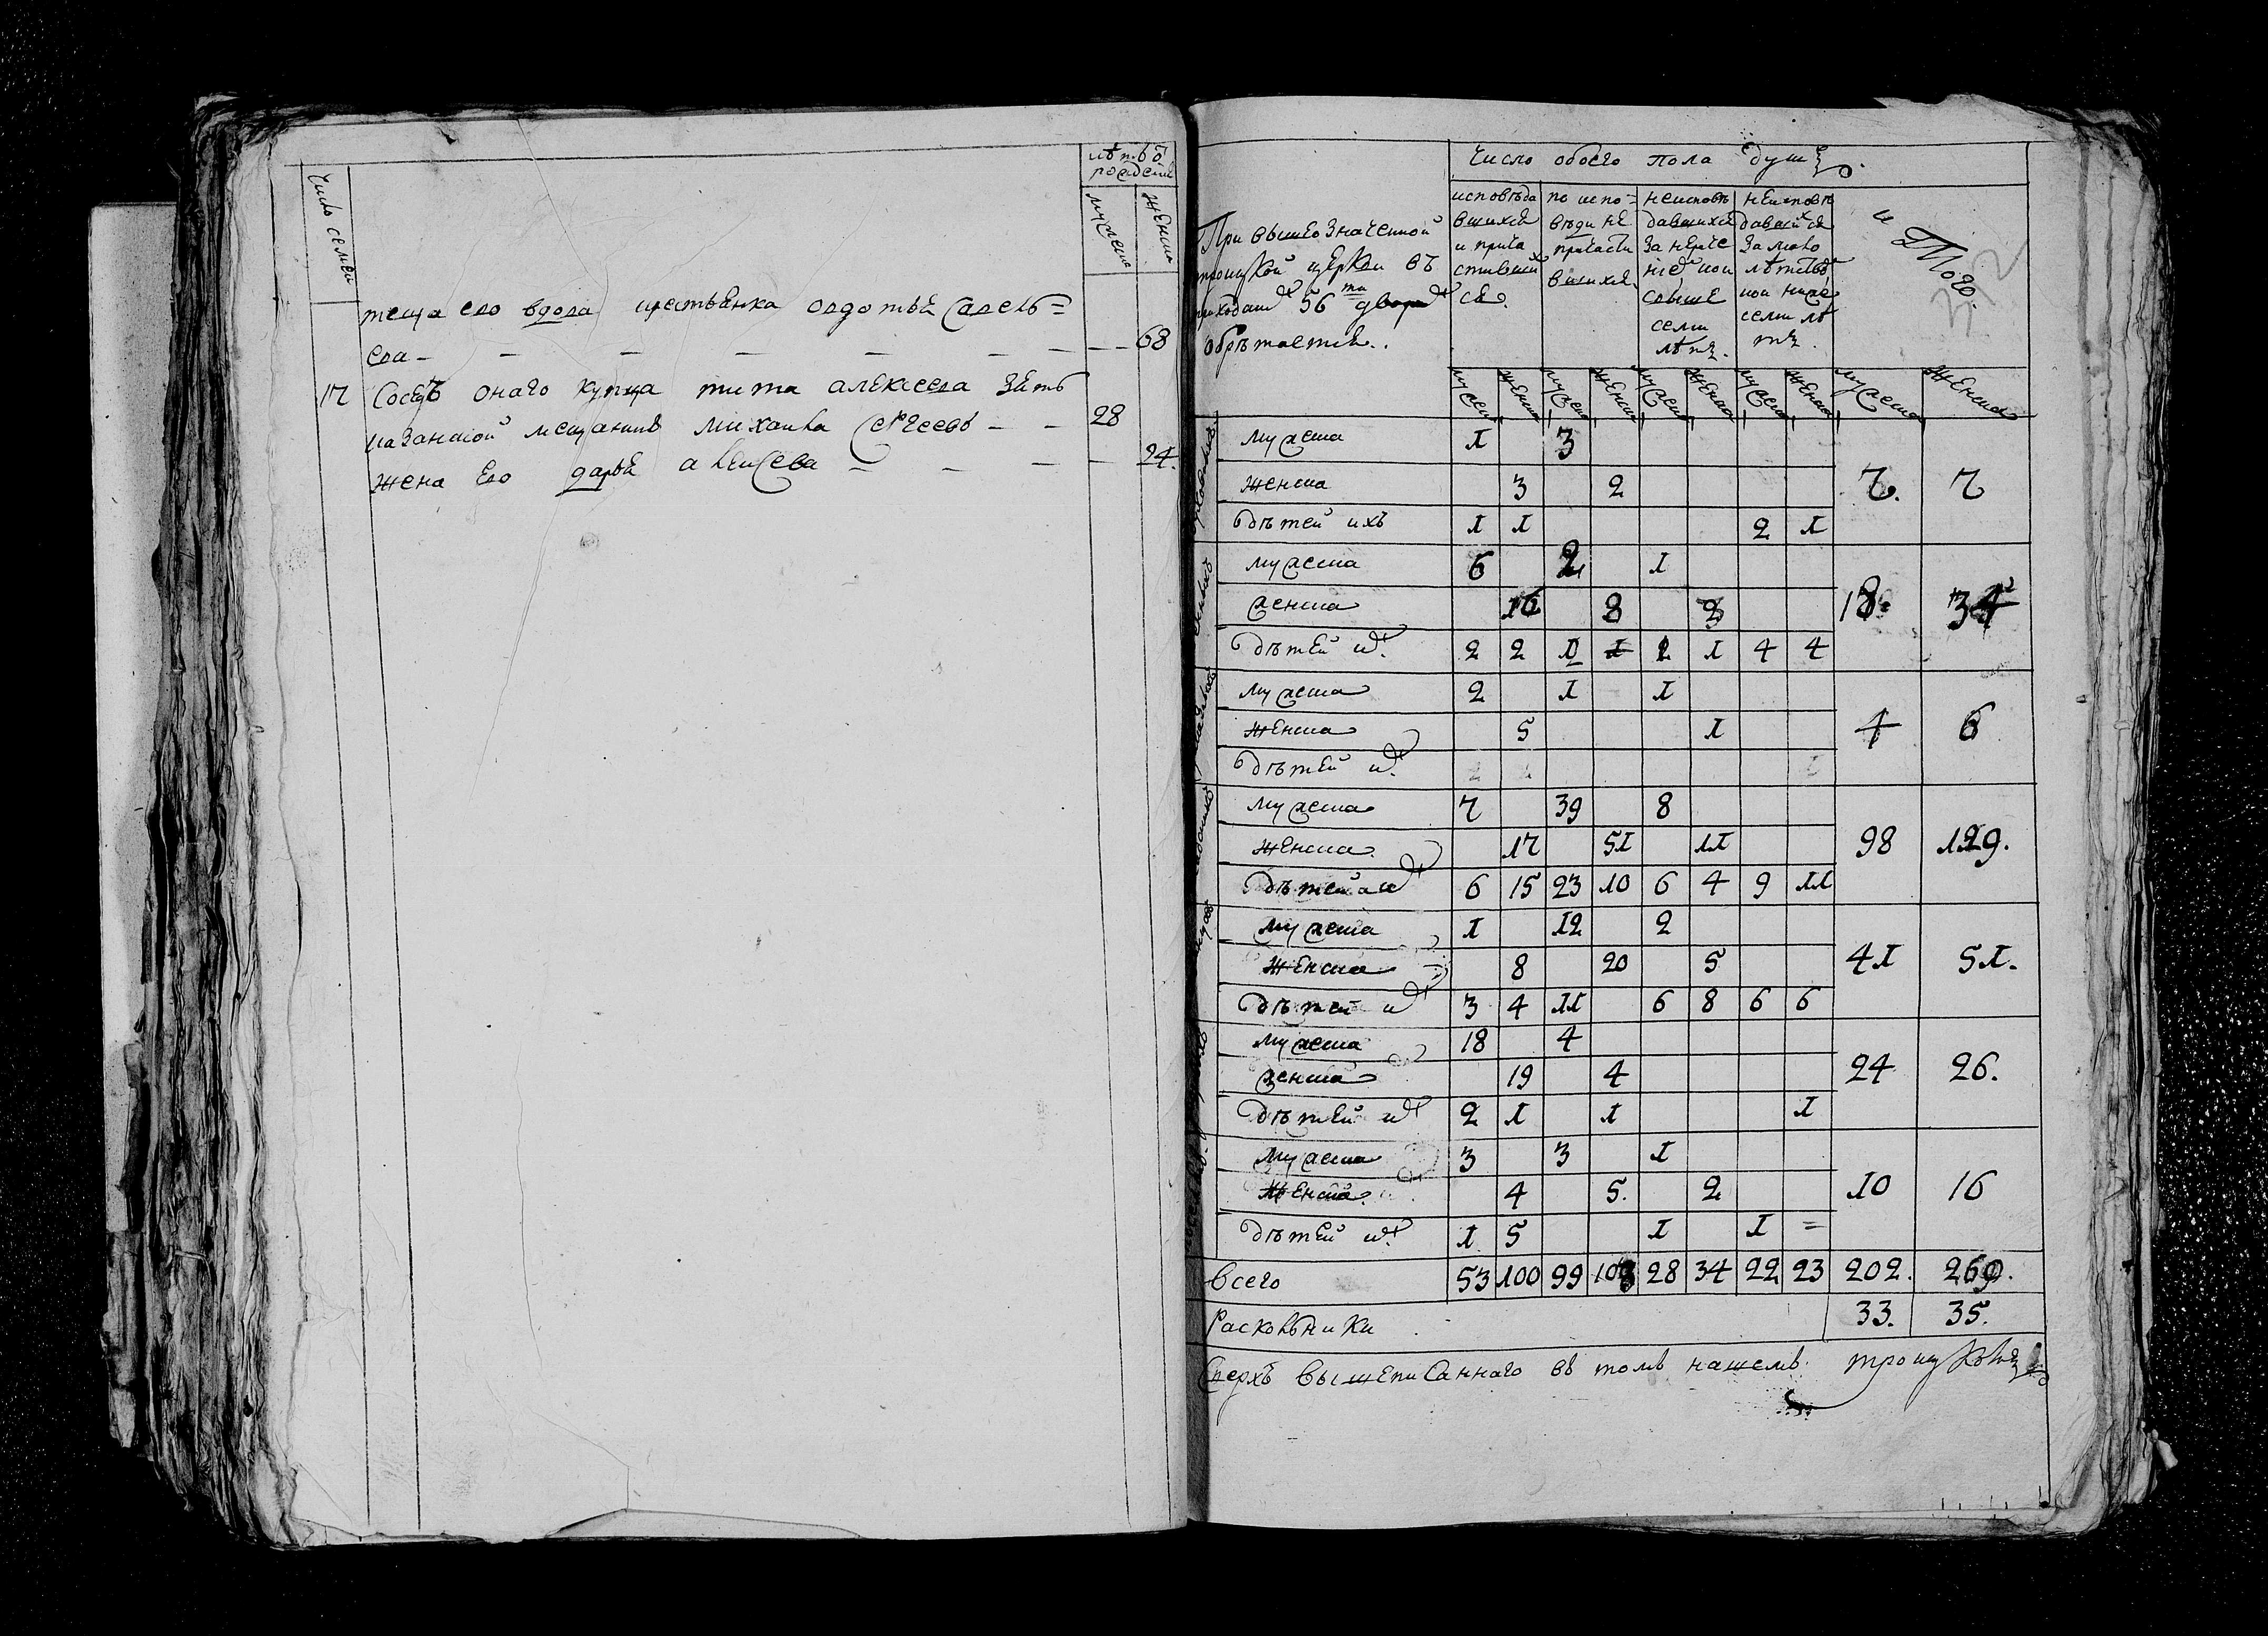 Число семей
лѣтъ ѿ
рождения
мужеска
женска
теща его вдова крестьянка овдотья савель=
ева — — — — — — — 68
17 Сосѣдъ онаго купца тита алексеева зять
казанской мещанинъ михаила Сергеевъ — — 28
жена его дарья алексеева — — — — 24.
Число обоего пола душъ.
При вышеозначенной
троицкой церкви въ
приходскихъ 56ти дворахъ
обрѣтается..
исповѣда
вшихся
и прича
стивших
ся.
по испо=
вѣди не
причасти
вшихся.
неисповѣ
давшихся
за нераче
ниемъ
свыше
семи
лѣтъ.
неисповѣ
давшихся
за мало
лѣтствомъ
ниже
семи лѣ
тъ.
и Того.
372
мужеска женска мужеска женска мужеска женска мужеска женска мужеска женска
мужеска 1 3
женска 3 2 7. 7
дѣтей ихъ 1 1 2 1
мужеска 6 2 1
женска 16 8 18. 34
дѣтей ихъ 2 2 1 4 4
мужеска 2 1 1
женска 5 1 4 6
дѣтей ихъ.
мужеска 7 39 8
женска 17 51 11 98 129.
дѣтей ихъ 6 15 23 10 6 4 9 11
мужеска 1 12 2
женска 8 20 5 41 51.
дѣтей ихъ 3 4 11 6 8 6 6
мужеска 18 4
женска 19 4 24 26.
дѣтей ихъ 2 1 1 1
мужеска 3 3 1
женска 4 5. 2 10 16
дѣтей ихъ. 1 5 1 1 =
всего 53 100 99 103 28 34 22 23 202. 269.
Раскольники 33. 35.
Сверхъ вышеписаннаго въ томъ нашемъ троицкомъ